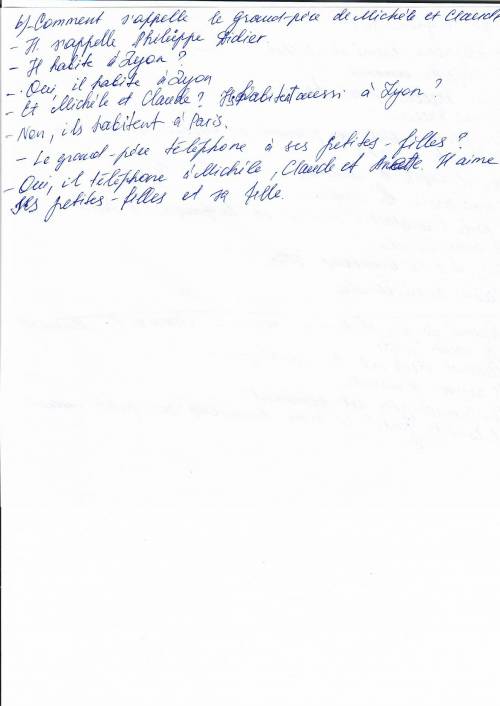 b) - Comment s'appelle le grand-père de Michèle et Claude
- Il s'appelle Philippe Didier.
- Il habite à Lyon?
- Oui, il habite à Lyon
- Et Michèle et Claude? Ils habitent aussi à Lyon?
- Non, ils habitent à Paris.
- Le grand-père téléphone à ses petites-filles?
- Oui, il téléphone à Michèle, Claude et Il aime
ses petites-filles et sa fille.